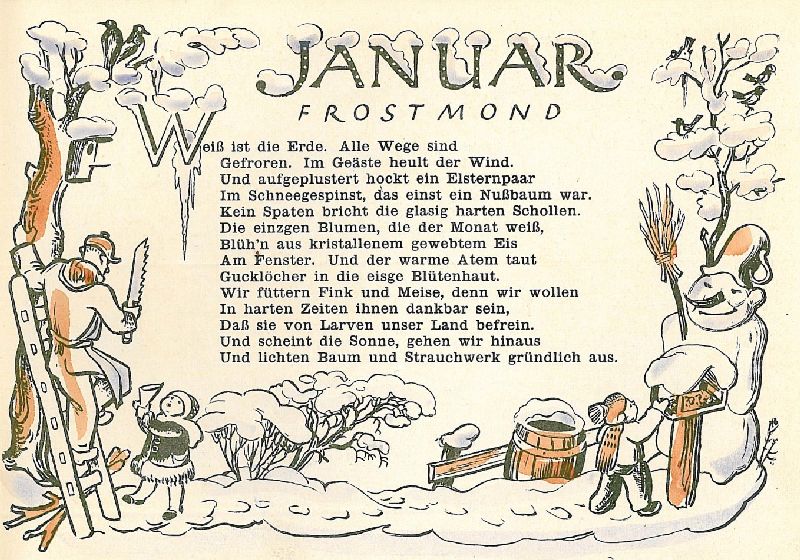 JANUAR.
FROSTMOND
Weiß ist die Erde. Alle Wege sind
Gefroren. Im Geäste heult der Wind.
Und aufgeplustert hockt ein Elsternpaar
Im Schneegespinst, das einst ein Nußbaum war.
Kein Spaten bricht die glasig harten Schollen.
Die einzgen Blumen, die der Monat weiß,
Blüh'n aus kristallenem gewebtem Eis
Am Fenster. Und der warme Atem taut
Gucklöcher in die eisge Blütenhaut.
Wir füttern Fink und Meise, denn wir wollen
In harten Zeiten ihnen dankbar sein,
Daß sie von Larven unser Land befrein.
Und scheint die Sonne, gehen wir hinaus
Und lichten Baum und Strauchwerk gründlich aus.